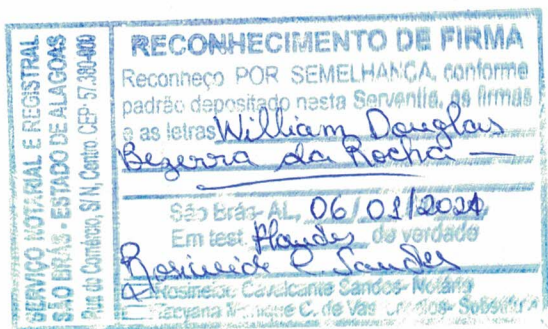 SERVIÇO NOTARIAL E REGISTRAL
SÃO BRÁS - ESTADO DE ALAGOAS
Rua do Comércio, S/N, Centro CEP: 57.380-000
RECONHECIMENTO DE FIRMA
Reconheço POR SEMELHANÇA, conforme
padrão depositado nesta Serventia, as firmas
e as letras William Douglas
Bezerra da Rocha
São Brás-AL, 06/01/2021
Em test. da verdade
Rosineide C Sandes
Rosineide Cavalcante Sandes- Notária
C. de Vas - Substituta